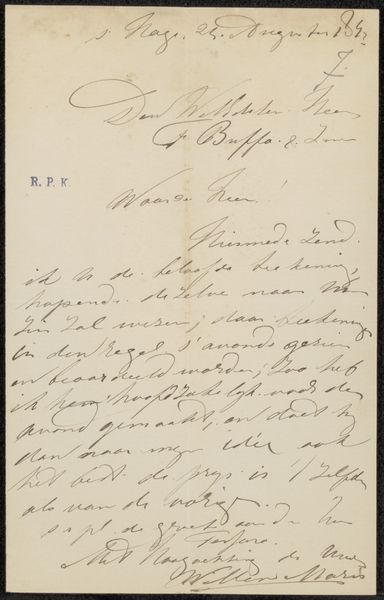 s Hage. 24 Augustus
Den WelEdelen Heer
F Buffa & Zoon
R. P. K.
Waarde Heer!
Hiermede zend
ik U de beloofde teekening,
hopende dezelve naar uw
zin zal wezen; daar teekeningen
in den regel s'avonds gezien
en beoordeeld worden; zoo heb
ik hem hoofdzakelijk voor den
avond gemaakt, en doet hij
dan naar mijn idée ook
het best. de prijs is 't zelfde
als van de vorige.
s.v.pl. de groete aan de Heer
Met Hoogachting de Uwe
Willem Maris